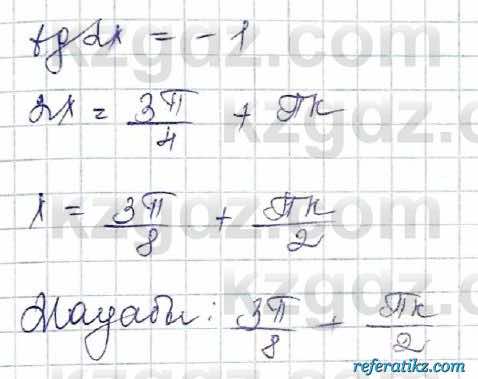 tg2x = - 1
2x = 3π/4 + πk
x = 3π/8 + πk/2
Жауабы: 3π/8 + πk/2
kzgdz.com
referatikz.com